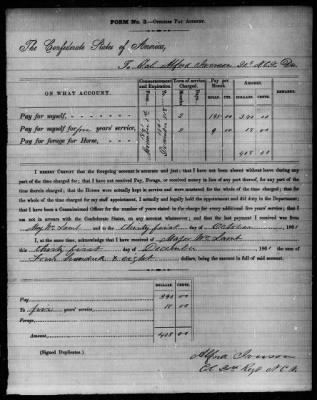 FORM No. 3.—Officers Pay Account.
The Confederate States of America,
To Col Alfred Iverson 20th N.C.S. Dr.
ON WHAT ACCOUNT.
Commencement and Expiration.
Term of service charged.
Pay per Month.
AMOUNT.
REMARKS.
Months. Days. DOLLS. CTS. DOLLARS. CENTS.
Pay for myself, 2 195 00 390 00
Pay for myself for five years' service, 2 9 00 18 00
Pay for forage for Horse,
November 1st 1861
December 31st 1861
408 00
I HEREBY CERTIFY that the foregoing account is accurate and just; that I have not been absent without leave during any
part of the time charged for; that I have not received Pay, Forage, or received money in lieu of any part thereof, for any part of the
time therein charged; that the Horses were actually kept in service and were mustered for the whole of the time charged; that for
the whole of the time charged for my staff appointment, I actually and legally held the appointment and did duty in the Department;
that I have been a Commissioned Officer for the number of years stated in the charge for every additional five years' service; that I
am not in arrears with the Confederate States, on any account whatsoever; and that the last payment I received was from
Maj Wm Saml and to the thirty first day of October 1861
I, at the same time, acknowledge that I have received of Major Wm Saml
this thirty first day of December 1861 the sum of
Four hundred & eight dollars, being the amount in full of said account.
DOLLARS. CENTS.
Pay 390 00
To five years' service, 18 00
Forage,
Amount, 408 00
(Signed Duplicates.)
Alfred Iverson
Col 20th Regt N.C.S.